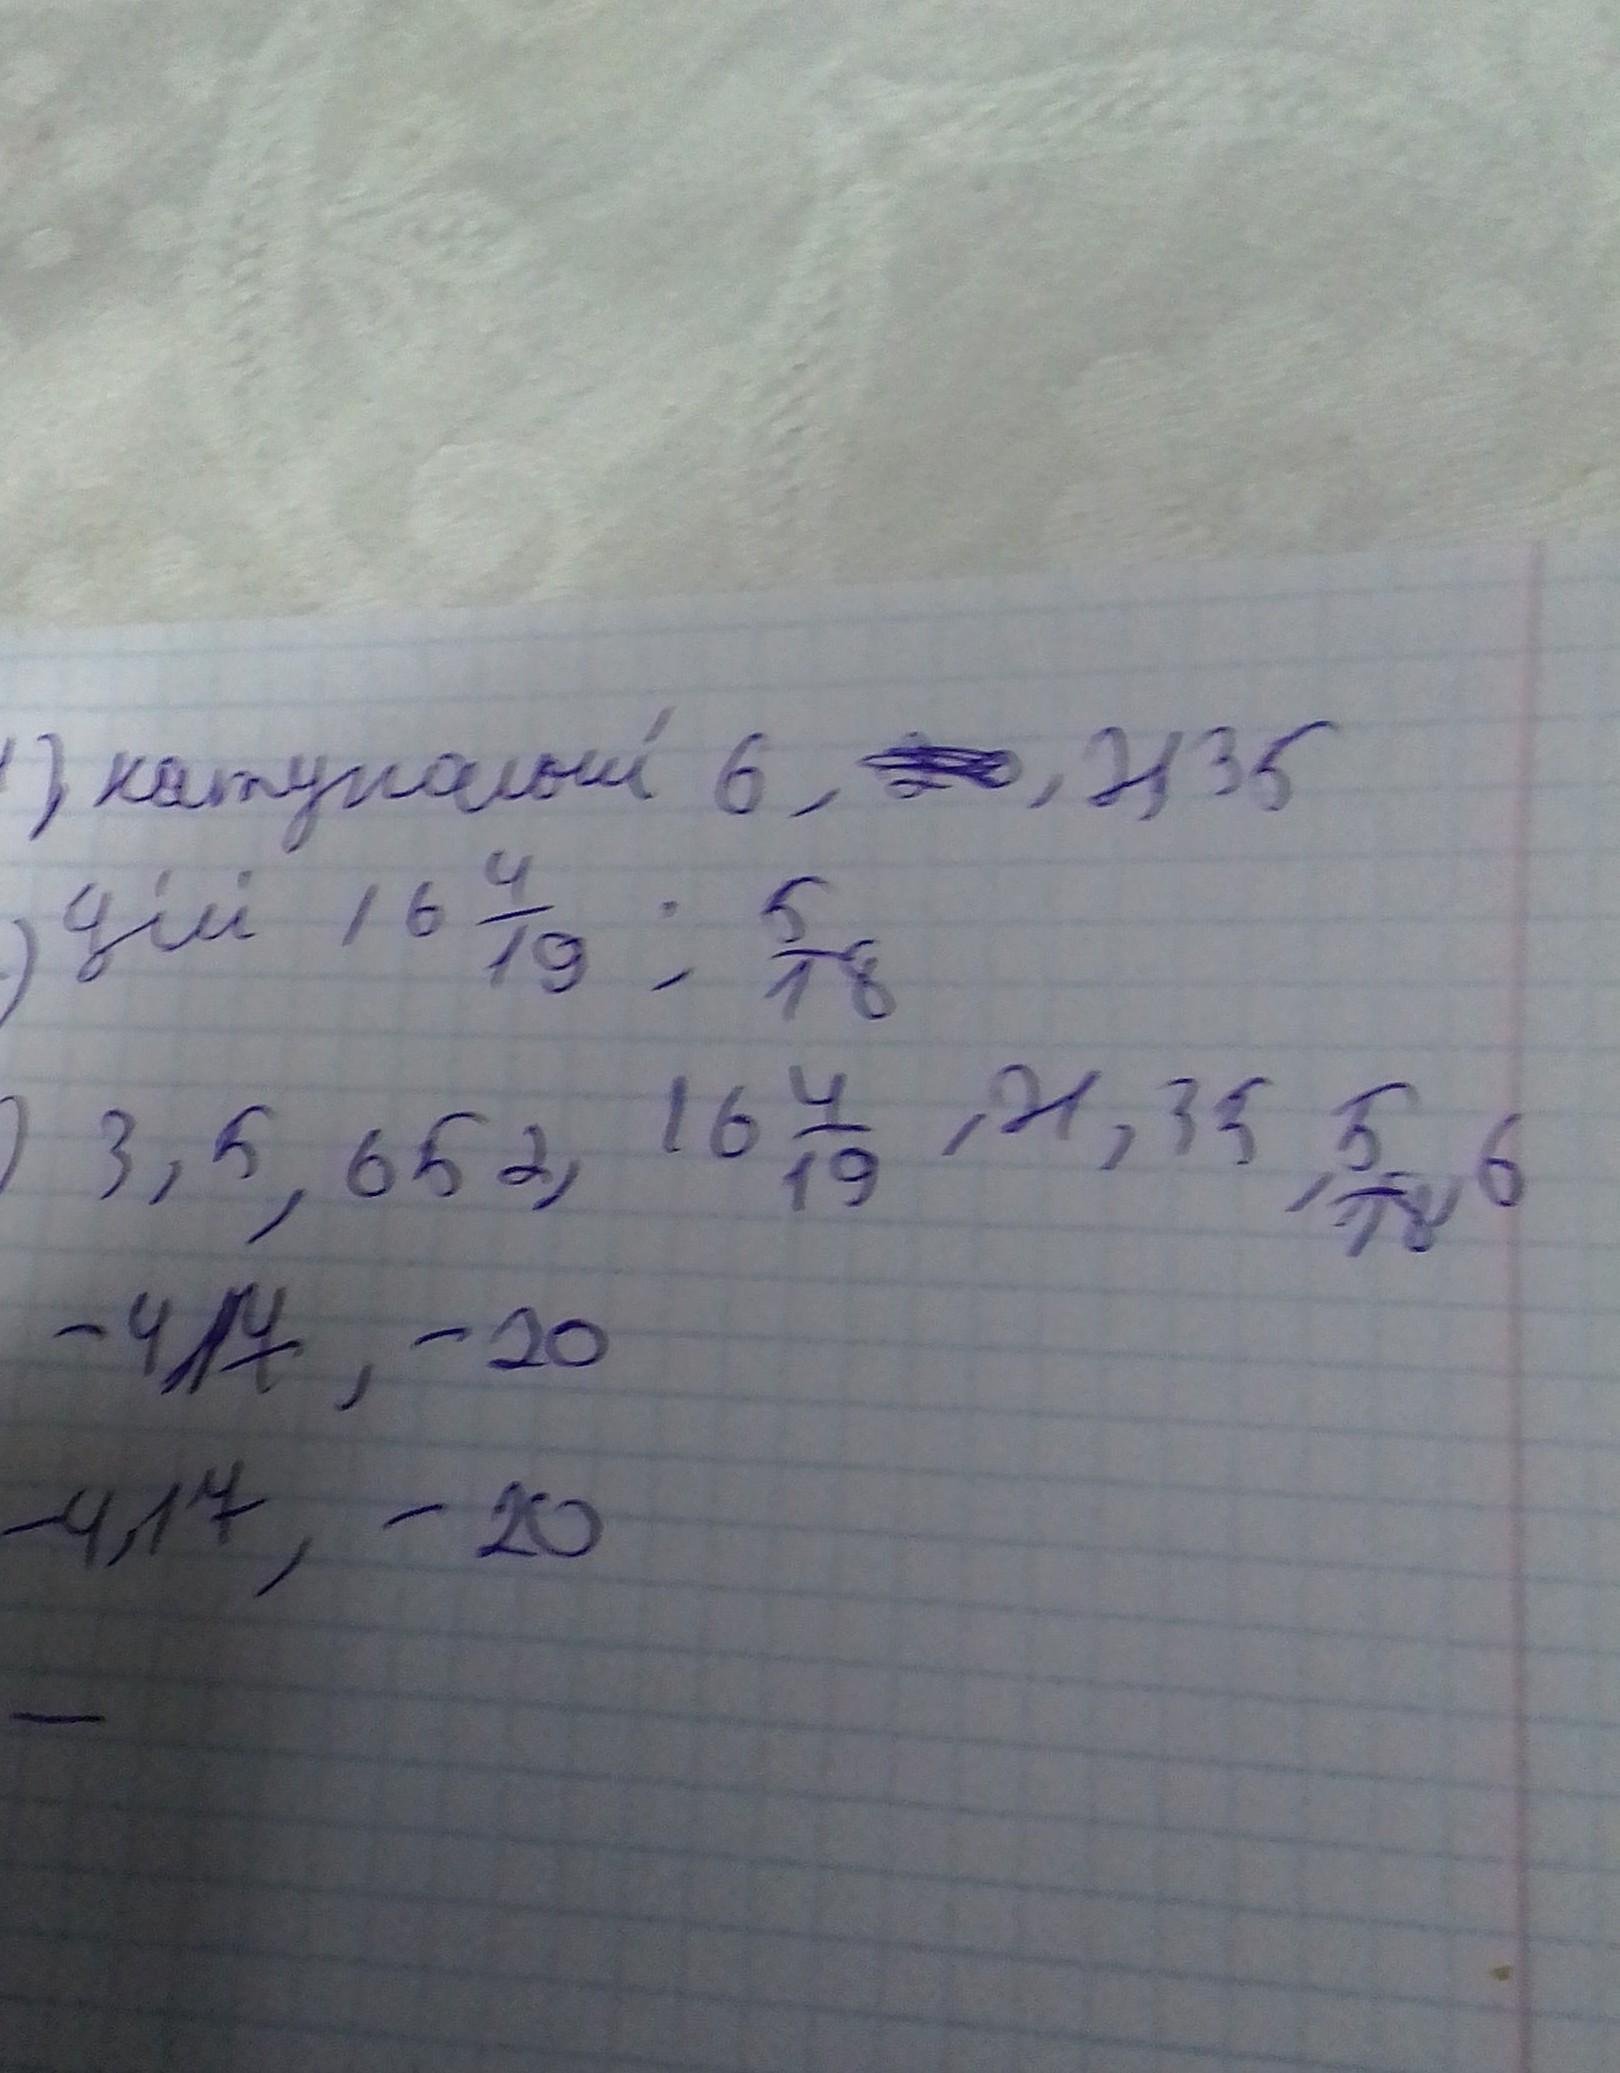 1) натуральні 6, 21, 35
) цілі 16 4/19 ; 5/18
) 3, 5, 652, 16 4/19, 21, 35, 5/18, 6
-4,17, -20
-4,17, -20
—